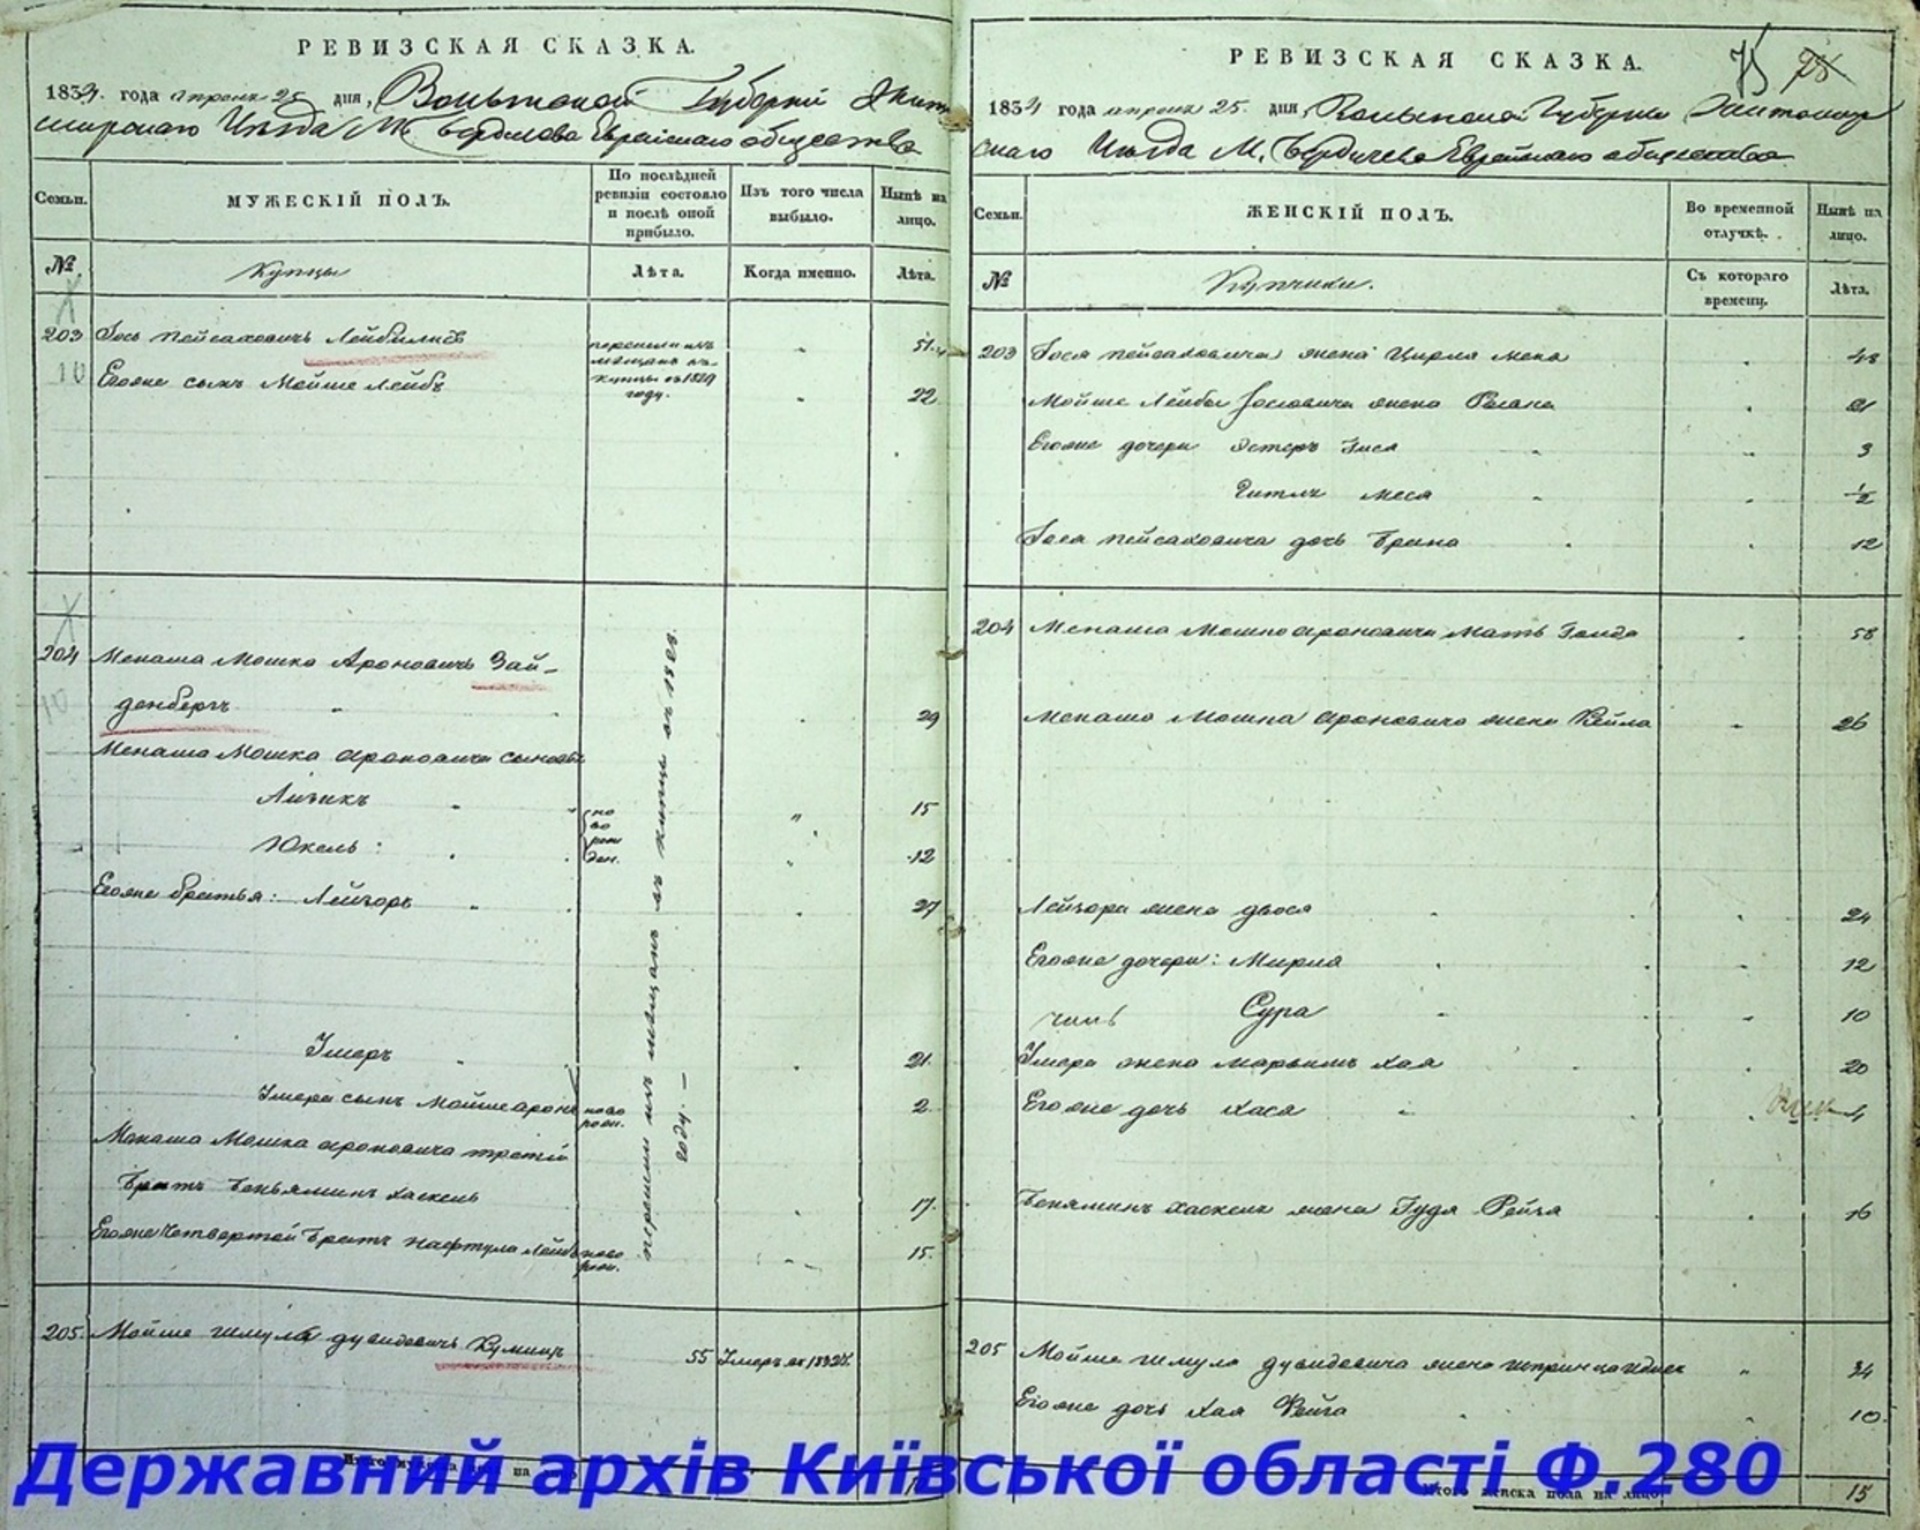 РЕВИЗСКАЯ СКАЗКА.
1834. года апреля 25 дня, Волынской Губернии Жито
мирскаго Уезда М. Бердичева Еврейскаго общества
Семьи.
МУЖЕСКІЙ ПОЛЪ.
По послѣдней ревизіи состояло и послѣ оной прибыло.
Изъ того числа выбыло.
Нынѣ на лицо.
№.
Купцы
Лѣта.
Когда именно.
Лѣта.
203 Іось Пейсаховичъ 51
10 Егоже сынъ Мойше Лейбъ 22
перешли изъ
мещанъ въ
купцы въ 1829
году.
204 Менаша Мошко Ароновичъ Зай-
10 денбергъ 29
Менаша Мошка Ароновича сыновья
Айзикъ 15
Юкель: 12
но
во
рож
ден.
Егоже братья: Лейзоръ 27
Імеръ 21.
Імера сынъ Мойше Аронъ ново рож. 2
Менаша Мошка Ароновича третій
Братъ Беньяминъ Хаскель 17.
Егоже Четвертой Братъ Нафтула Лейбъ ново рож. 15.
перешли изъ мещанъ въ купцы въ
году. —
205. Мойше Шмуль Дувидовичъ 55
РЕВИЗСКАЯ СКАЗКА.
75 78
1834 года апреля 25. дня, Волынской Губернии Житомир
скаго Уезда М. Бердичева Еврейскаго общества
Семьи.
ЖЕНСКІЙ ПОЛЪ.
Во временной отлучкѣ.
Нынѣ на лицо.
№
Купчихи.
Съ котораго времени.
Лѣта.
203 Іося Пейсаховича жена Цирля 48
Мойше Лейбы Іосіовича жена 21
Егоже дочери Эстеръ 3
Гитля 1/2
Іося Пейсаховича дочь Брана 12
204 Менаша Мошко Ароновича Мать Голда 58
Менаша Мошка Ароновича жена Кейла 26
Лейзора жена Двося 24
Егоже дочери: Мирля 12
Сура 10
Імера жена Марьямъ Хая 20
Егоже дочь Хася 4
Беняминъ Хаскель жена Гудя Рейза 16
205 Мойше Шмуля Дувидовича жена 34
Егоже дочь Хая Фейга 10.
Итого женска пола на лицо 15
Державний архів Київської області Ф.280